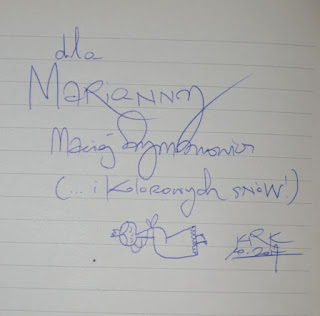 dla
MARiANNy
Maciej Szymanowicz
(... i kolorowych snów!)
KRK